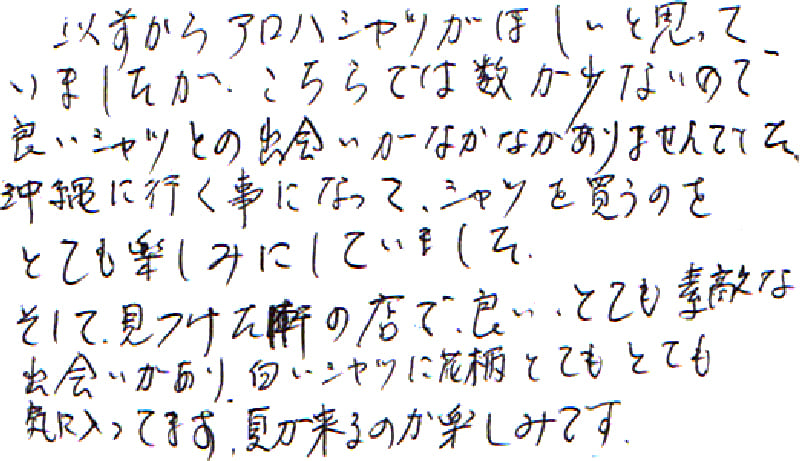 以前からアロハシャツがほしいと思って、
いましたが、こちらでは数が少ないので
良いシャツとの出会いがなかなかありませんでした、
沖縄に行く事になって、シャツを買うのを
とても楽しみにしていました.
そして、見つけた軒の店で、良い、とても素敵な
出会いがあり、白いシャツに花柄とてもとても
気に入ってます、夏が来るのが楽しみです.